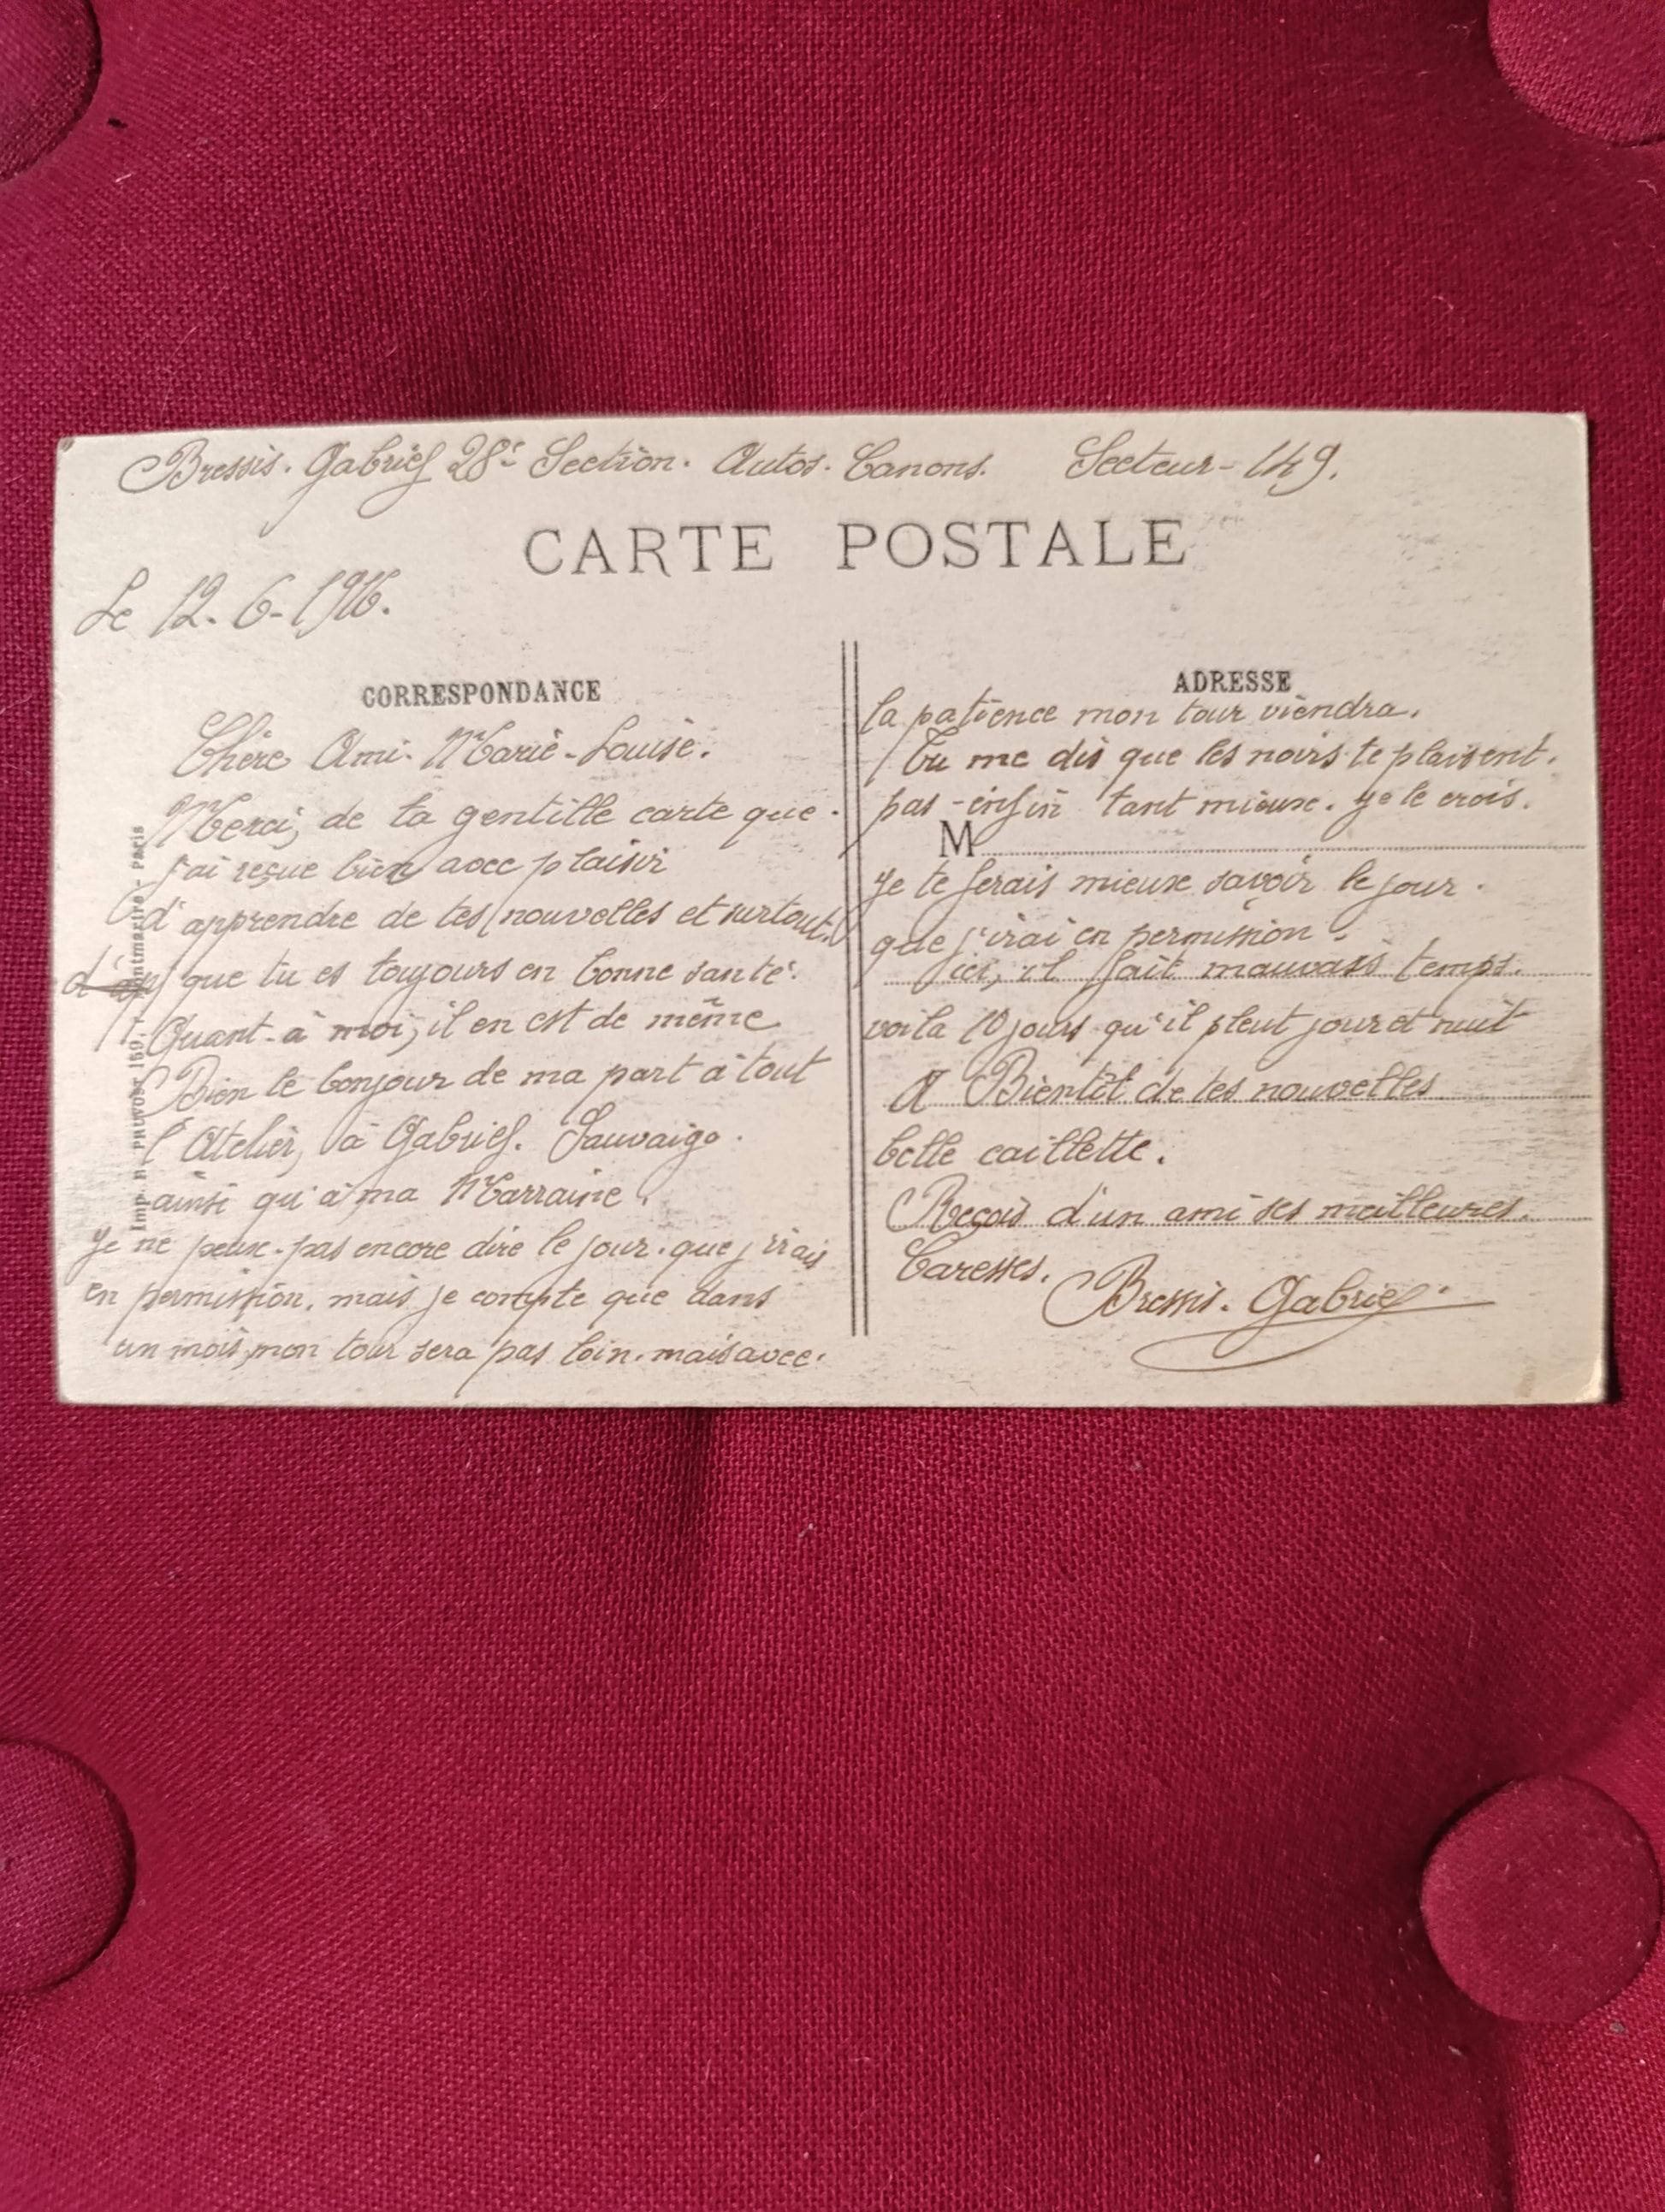 Bressis. Gabriel 28e Section. Autos. Canons. Secteur - 149.
CARTE POSTALE
Le 12. 6 - 1916.
CORRESPONDANCE
Chère Ami. Marie - Louise.
Merci, de ta gentille carte que
j'ai reçue bien avec plaisir
d'apprendre de tes nouvelles et surtout.
que tu es toujours en bonne santé.
Quant - à moi, il en est de même
Bien le bonjour de ma part à tout
l'Atelier, à Gabriel. Sauvaigo.
ainsi qu'à ma Marraine.
Je ne peux - pas encore dire le jour. que j'irais
en permission. mais je compte que dans
un mois mon tour sera pas loin. mais avec.
Imp. Ph. PRUVOST 159, r. Montmartre - Paris
ADRESSE
la patience mon tour viendra.
Tu me dis que les noirs te plaisent.
pas - enfin tant mieux. je le crois.
M
Je te ferais mieux savoir le jour.
que j'irai en permission.
ici, il fait mauvais temps.
voila 10 jours qu'il pleut jour et nuit
A Bientôt de tes nouvelles
belle caillette.
Reçois d'un ami ses meilleures.
Caresses.
Bressis. Gabriel.